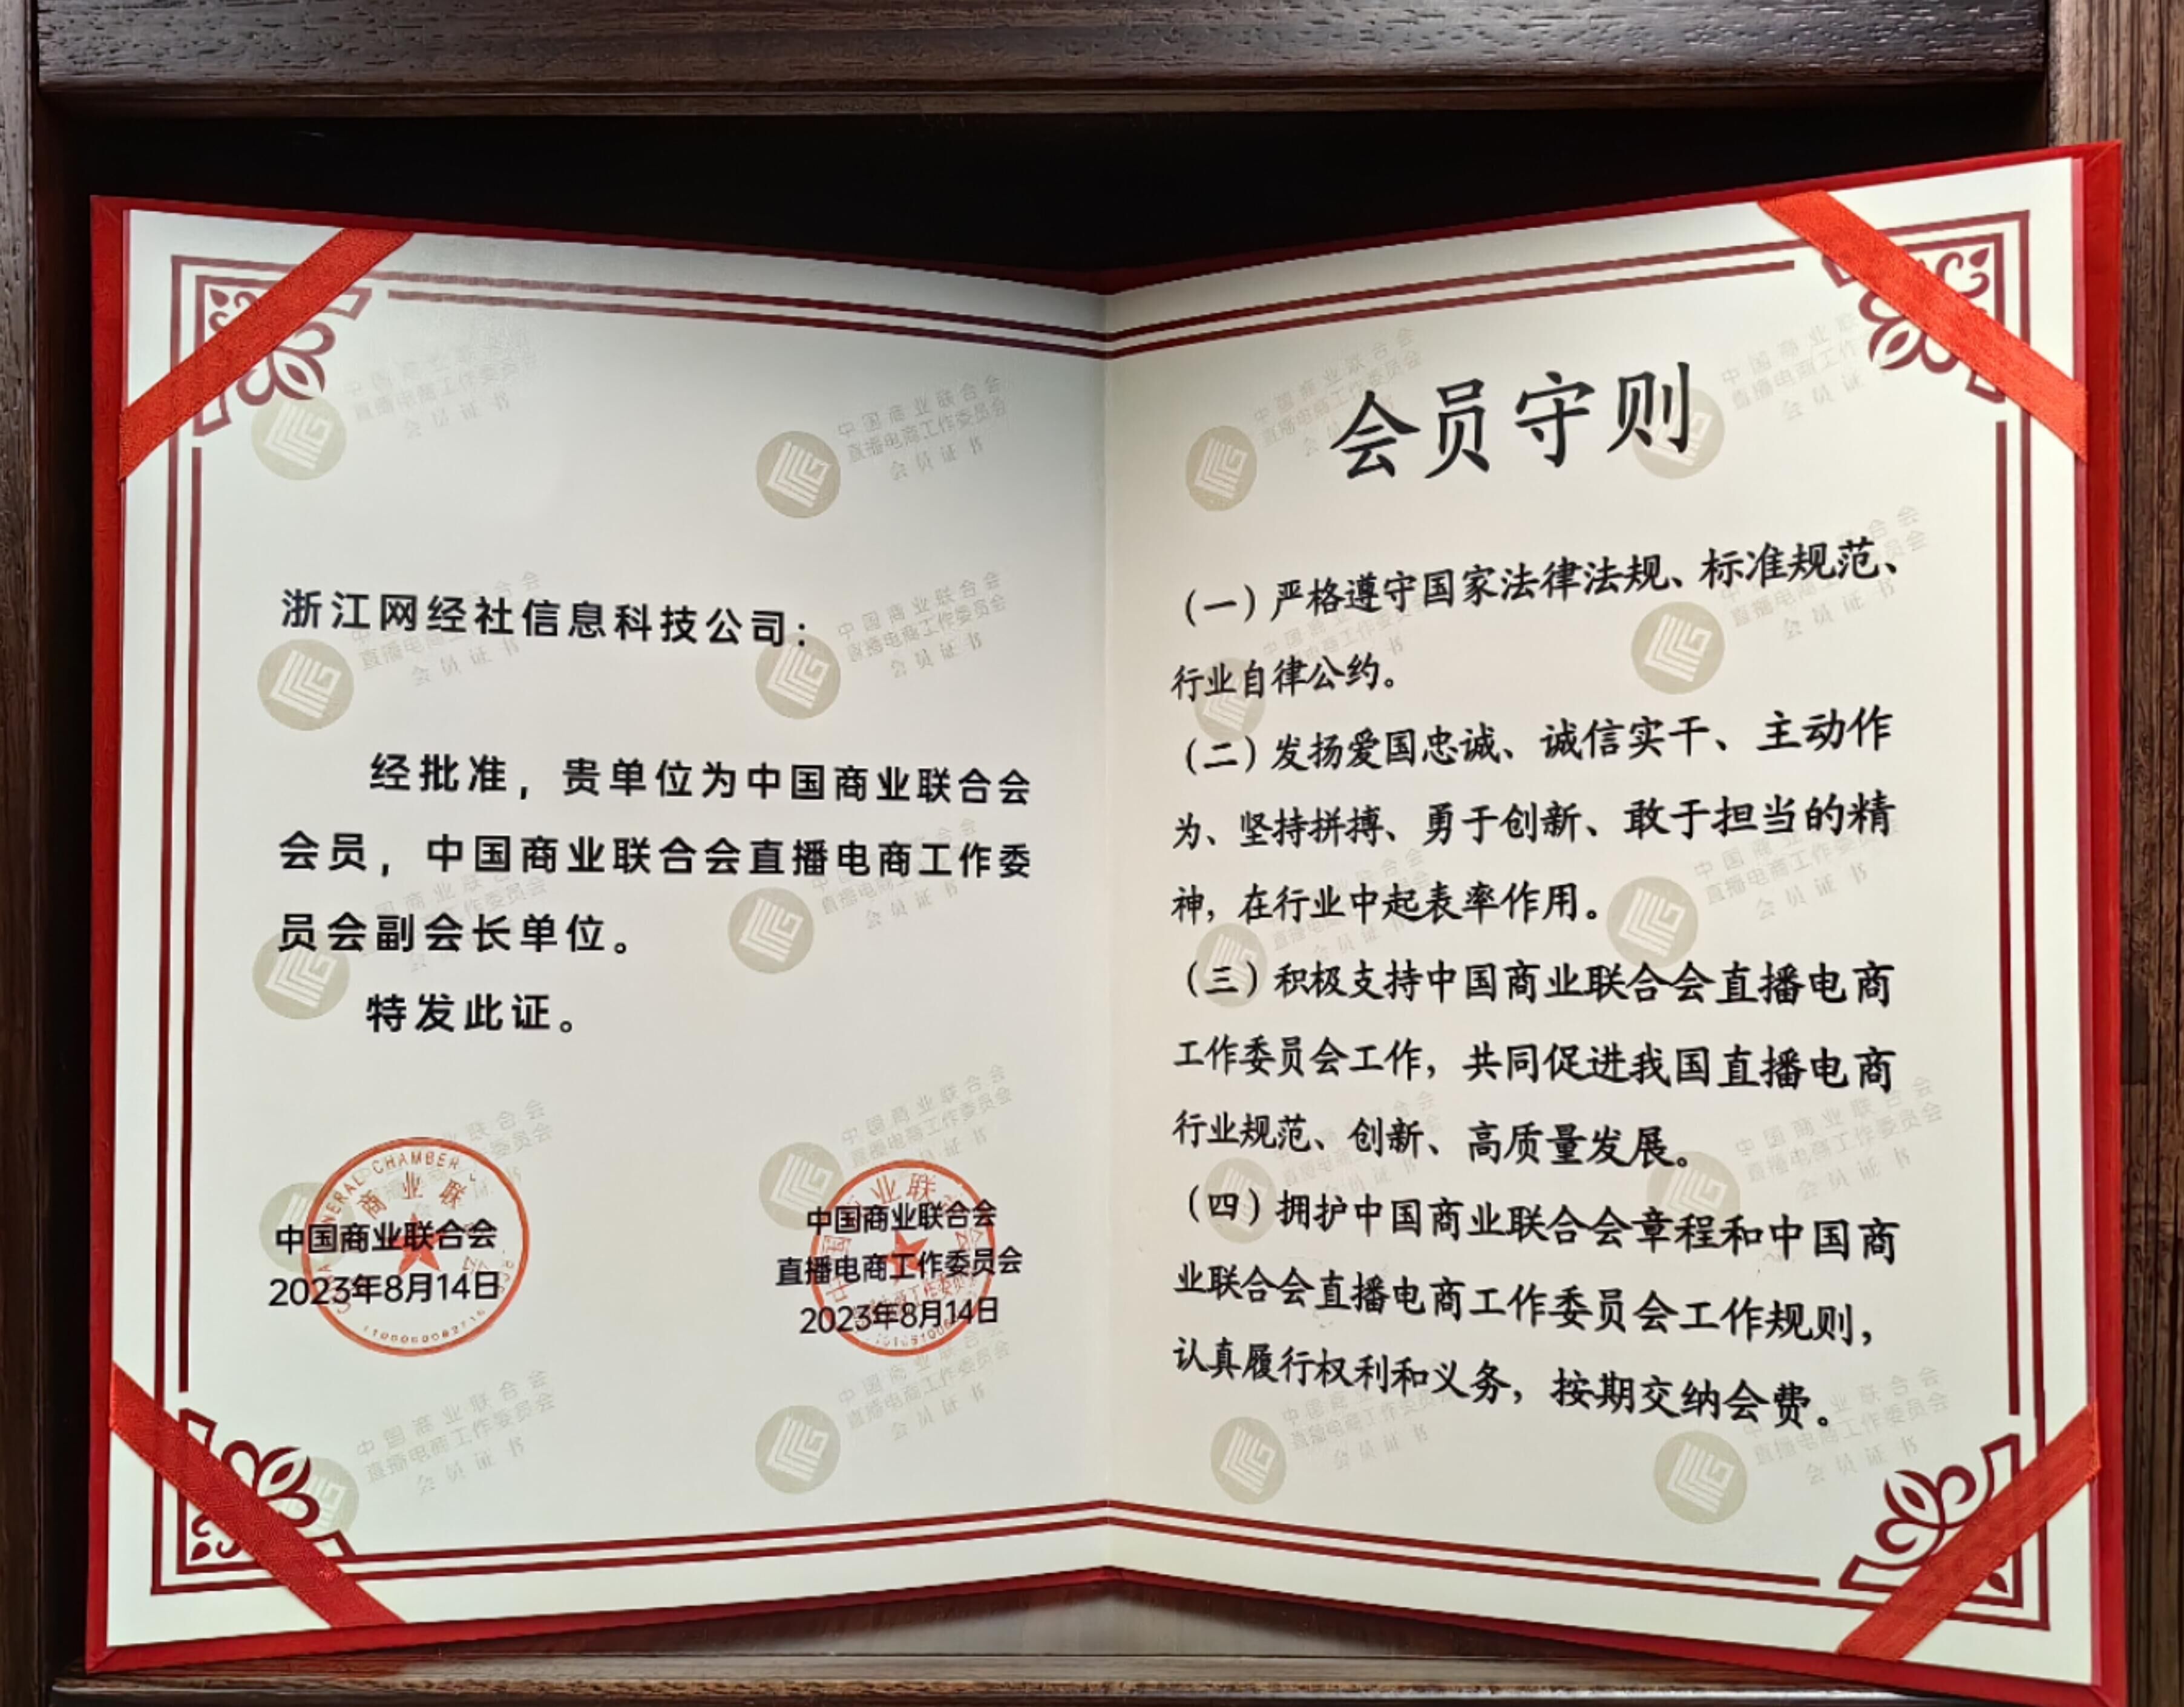 浙江网经社信息科技公司：
经批准，贵单位为中国商业联合会
会员，中国商业联合会直播电商工作委
员会副会长单位。
特发此证。
中国商业联合会
2023年8月14日
中国商业联合会
直播电商工作委员会
2023年8月14日
会员守则
（一）严格遵守国家法律法规、标准规范、
行业自律公约。
（二）发扬爱国忠诚、诚信实干、主动作
为、坚持拼搏、勇于创新、敢于担当的精
神，在行业中起表率作用。
（三）积极支持中国商业联合会直播电商
工作委员会工作，共同促进我国直播电商
行业规范、创新、高质量发展。
（四）拥护中国商业联合会章程和中国商
业联合会直播电商工作委员会工作规则，
认真履行权利和义务，按期交纳会费。
中国商业联合会
直播电商工作委员会
会员证书